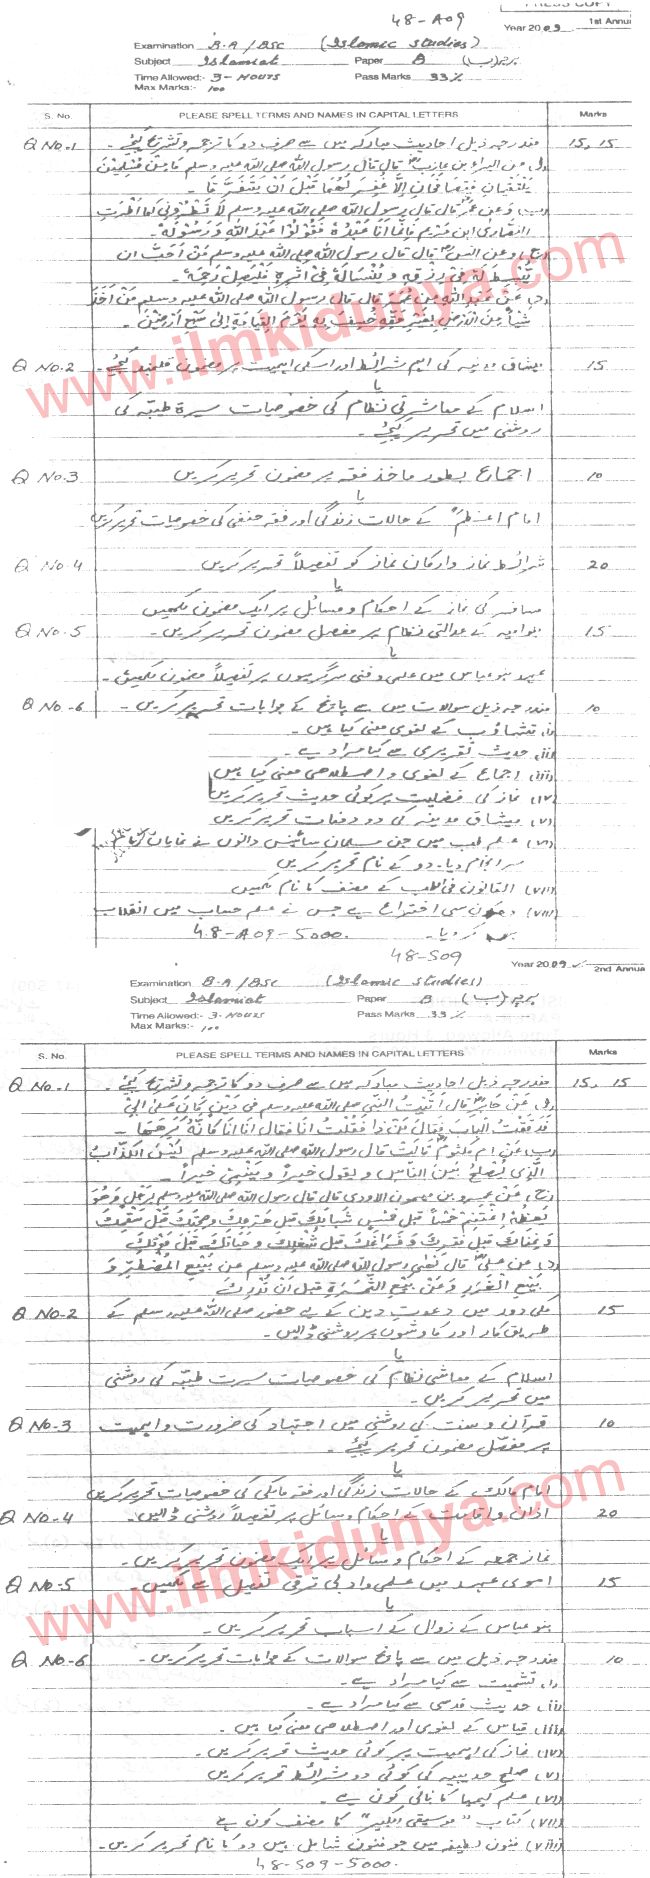 48-A09
Year 2009 1st Annu
Examination B.A/BSc (Islamic Studies)
Subject Islamiat Paper B پرچہ (ب)
Time Allowed:- 3-HOURS Pass Marks 33%
Max Marks:- 100
S. No. PLEASE SPELL TERMS AND NAMES IN CAPITAL LETTERS Marks
Q No-1 مندرجہ ذیل احادیث مبارکہ میں سے صرف دو کا ترجمہ و تشریح کیجئے۔ 15,15
(ا) عن البراء بن عازبؓ قال قال رسول الله صلى الله عليه وسلم مَا مِنْ مُسْلِمَيْنِ
يَلْتَقِيَانِ فَيَتَصَافَحَانِ إِلَّا غُفِرَ لَهُمَا قَبْلَ أَنْ يَتَفَرَّقَا -
(ب) وَعَن عمرؓ قال قال رسول الله صلى الله عليه وسلم لَا تُطْرُونِي كما أَطْرَتِ
النصارى ابن مريم فَإِنَّمَا أَنَا عَبْدُهُ فَقُولُوا عَبْدُ اللهِ وَرَسُولُهُ -
(ج) وعن انسؓ قال قال رسول الله صلى الله عليه وسلم مَنْ أَحَبَّ ان
يُبْسَطَ لَهُ فِي رِزْقِهِ وَيُنْسَأَ لَهُ فِي أَثَرِهِ فَلْيَصِلْ رَحِمَهُ -
(د) عَنْ عَبْدِ اللهِ بْنِ عُمَرَ قال قال رسول الله صلى الله عليه وسلم مَنْ أَخَذَ
شَيْأً مِنَ الْأَرْضِ بِغَيْرِ حَقِّهِ خُسِفَ بِهِ يَوْمَ الْقِيَامَةِ إِلَى سَبْعِ أَرَضِيْنَ -
Q No-2 میثاق مدینہ کی اہم شرائط اور اسکی اہمیت پر مضمون قلمبند کیجئے۔ 15
یا
اسلام کے معاشرتی نظام کی خصوصیات سیرۃ طیبّہ کی
روشنی میں تحریر کیجئے۔
Q No-3 اجماع بطور ماخذ فقہ پر مضمون تحریر کریں 10
یا
امام اعظمؒ کے حالات زندگی اور فقہ حنفی کی خصوصیات تحریر کریں
Q No-4 شرائط نماز و ارکان نماز کو تفصیلاً تحریر کریں 20
یا
مسافر کی نماز کے احکام و مسائل پر ایک مضمون لکھیں
Q No-5 بنوامیہ کے عدالتی نظام پر مفصل مضمون تحریر کریں۔ 15
یا
عہد بنو عباس میں علمی و فنی سرگرمیوں پر تفصیلاً مضمون لکھیئے۔
Q No-6 مندرجہ ذیل سوالات میں سے پانچ کے جوابات تحریر کریں۔ 10
(i) تثاؤب کے لغوی معنی کیا ہیں۔
(ii) حدیث تقریری سے کیا مراد ہے۔
(iii) اجماع کے لغوی و اصطلاحی معنی کیا ہیں
(iv) نماز کی فضلیت پر کوئی حدیث تحریر کریں
(v) میثاق مدینہ کی دو دفعات تحریر کریں
(vi) علم طب میں جن مسلمان سائینس دانوں نے نمایاں کام
سرانجام دیا۔ دو کے نام تحریر کریں
(vii) القانون فی الطب کے مصنف کا نام لکھیں
(viii) وہ کون سی اختراع ہے جس نے علم حساب میں انقلاب
کردیا۔
48-A09-5000.
48-S09
Year 2009 2nd Annua
Examination B.A/BSc (Islamic Studies)
Subject Islamiat Paper B پرچہ (ب)
Time Allowed:- 3-HOURS Pass Marks 33%
Max Marks:- 100
S. No. PLEASE SPELL TERMS AND NAMES IN CAPITAL LETTERS Marks
Q No-1 مندرجہ ذیل احادیث مبارکہ میں سے صرف دو کا ترجمہ و تشریح کیجئے۔ 15, 15
(ا) عَنْ جابرؓ قال أَتَيْتُ النَّبى صلى الله عليه وسلم فى دَيْنٍ كَانَ عَلَى ابى
فَدَقَقْتُ الْبَابَ فَقَالَ مَنْ ذا فَقُلْتُ أنَا فقال أنَا أنَا كَأَنَّهُ كَرِهَهَا -
(ب) عَن ام كلثومؓ قَالَتْ قال رسول الله صلى الله عليه وسلم لَيْسَ الْكَذَّابُ
الَّذِى يُصْلِحُ بَيْنَ النَّاسِ وَيَقُولُ خَيْراً وَيَنْمِىْ خيراً -
(ج) عَنْ عمرو بن ميمون الاودى قال قال رسول الله صلى الله عليه وسلم لِرَجُلٍ وَهُوَ
يَعِظُهُ اغْتَنِمْ خَمْساً قَبلَ خَمْسٍ شَبَابَكَ قبل هَرَمِكَ وَصِحَّتَكَ قَبْلَ سَقَمِكَ
وَغِنَاكَ قبل فقرِكَ وَفَرَاغَكَ قبل شُغْلِكَ وَحَيَاتَكَ قَبْلَ مَوْتِكَ
(د) عن علىؓ قال نَهٰى رسول الله صلى الله عليه وسلم عن بَيْعِ الْمُضْطَرِّ وَ
بَيْعِ الْغَرَرِ وَعَنْ بَيْعِ الثَّمَرَةِ قبل أَنْ تُدْرِكَ
Q No-2 مکی دور میں دعوتِ دین کے لیے حضور صلی اللہ علیہ وسلم کے 15
طریق کار اور کاوشوں پر روشنی ڈالیں۔
یا
اسلام کے معاشی نظام کی خصوصیات سیرت طیبّہ کی روشنی
میں تحریر کریں۔
Q No-3 قرآن و سنت کی روشنی میں اجتہاد کی ضرورت و اہمیت 10
پر مفصّل مضمون تحریر کیجئے۔
یا
امام مالکؒ کے حالات زندگی اور فقہ مالکی کی خصوصیات تحریر کریں
Q No-4 اذان و اقامت کے احکام و مسائل پر تفصیلاً روشنی ڈالیں۔ 20
یا
نماز جمعہ کے احکام و مسائل پر ایک مضمون تحریر کریں۔
Q No-5 اموی عہد میں علمی و ادبی ترقی تفصیل سے لکھیں۔ 15
یا
بنو عباس کے زوال کے اسباب تحریر کریں۔
Q No-6 مندرجہ ذیل میں سے پانچ سوالات کے جوابات تحریر کریں۔ 10
(i) تشمیت سے کیا مراد ہے۔
(ii) حدیث قدسی سے کیا مراد ہے۔
(iii) قیاس کے لغوی اور اصطلاحی معنی کیا ہیں۔
(iv) نماز کی اہمیت پر کوئی حدیث تحریر کریں۔
(v) صلح حدیبیہ کی کوئی دو شرائط تحریر کریں
(vi) علم کیمیا کا بانی کون ہے۔
(vii) کتاب "موسیقی الکبیر" کا مصنف کون ہے
(viii) فنون لطیفہ میں جو فنون شامل ہیں دو کا نام تحریر کریں۔
48-S09-5000.
www.ilmkidunya.com
www.ilmkidunya.com